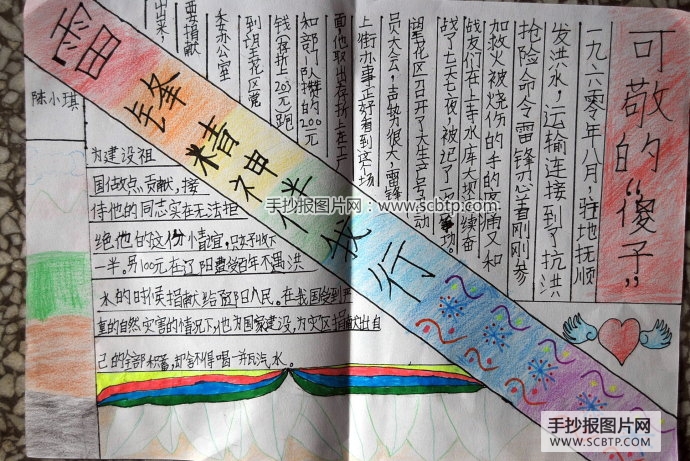 雷锋精神伴我行
可敬的“傻子”
一九六零年八月，驻地抚顺
发洪水，运输连接到了抗洪
抢险命令雷锋忍着刚刚参
加救火被烧伤的手的疼痛又和
战友们在上寺水库大坝连续奋
战了七天七夜，被记了一次功。
望花区召开了大生产号召动
员大会，声势很大，雷锋
上街办事正好看到这个场
面他取出存折上在工厂
和部队攒的200元
钱（存折上203元）跑
到望花区党
委办公室
要捐献
出来，
陈小琪
为建设祖
国做点贡献，接
侍他的同志实在无法拒
绝他的这份情宜，只好收下
一半。另100元在辽阳遭受百年不遇洪
水的时候捐献给辽阳人民。在我国受到严
重的自然灾害的情况下，他为国家建设，为灾区捐献出自
己的全部积蓄，却舍不得喝一瓶汽水。
手抄报图片网：www.scbtp.com
手抄报图片网
WWW.SCBTP.COM